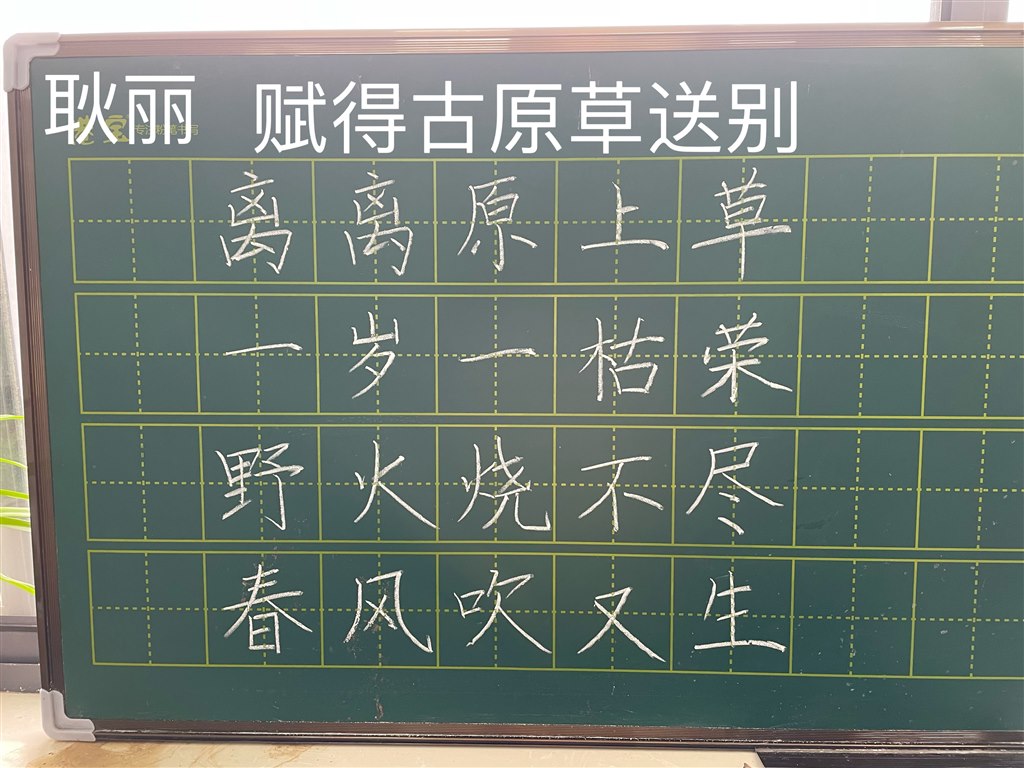 耿丽 赋得古原草送别
专注粉笔书写
离离原上草
一岁一枯荣
野火烧不尽
春风吹又生